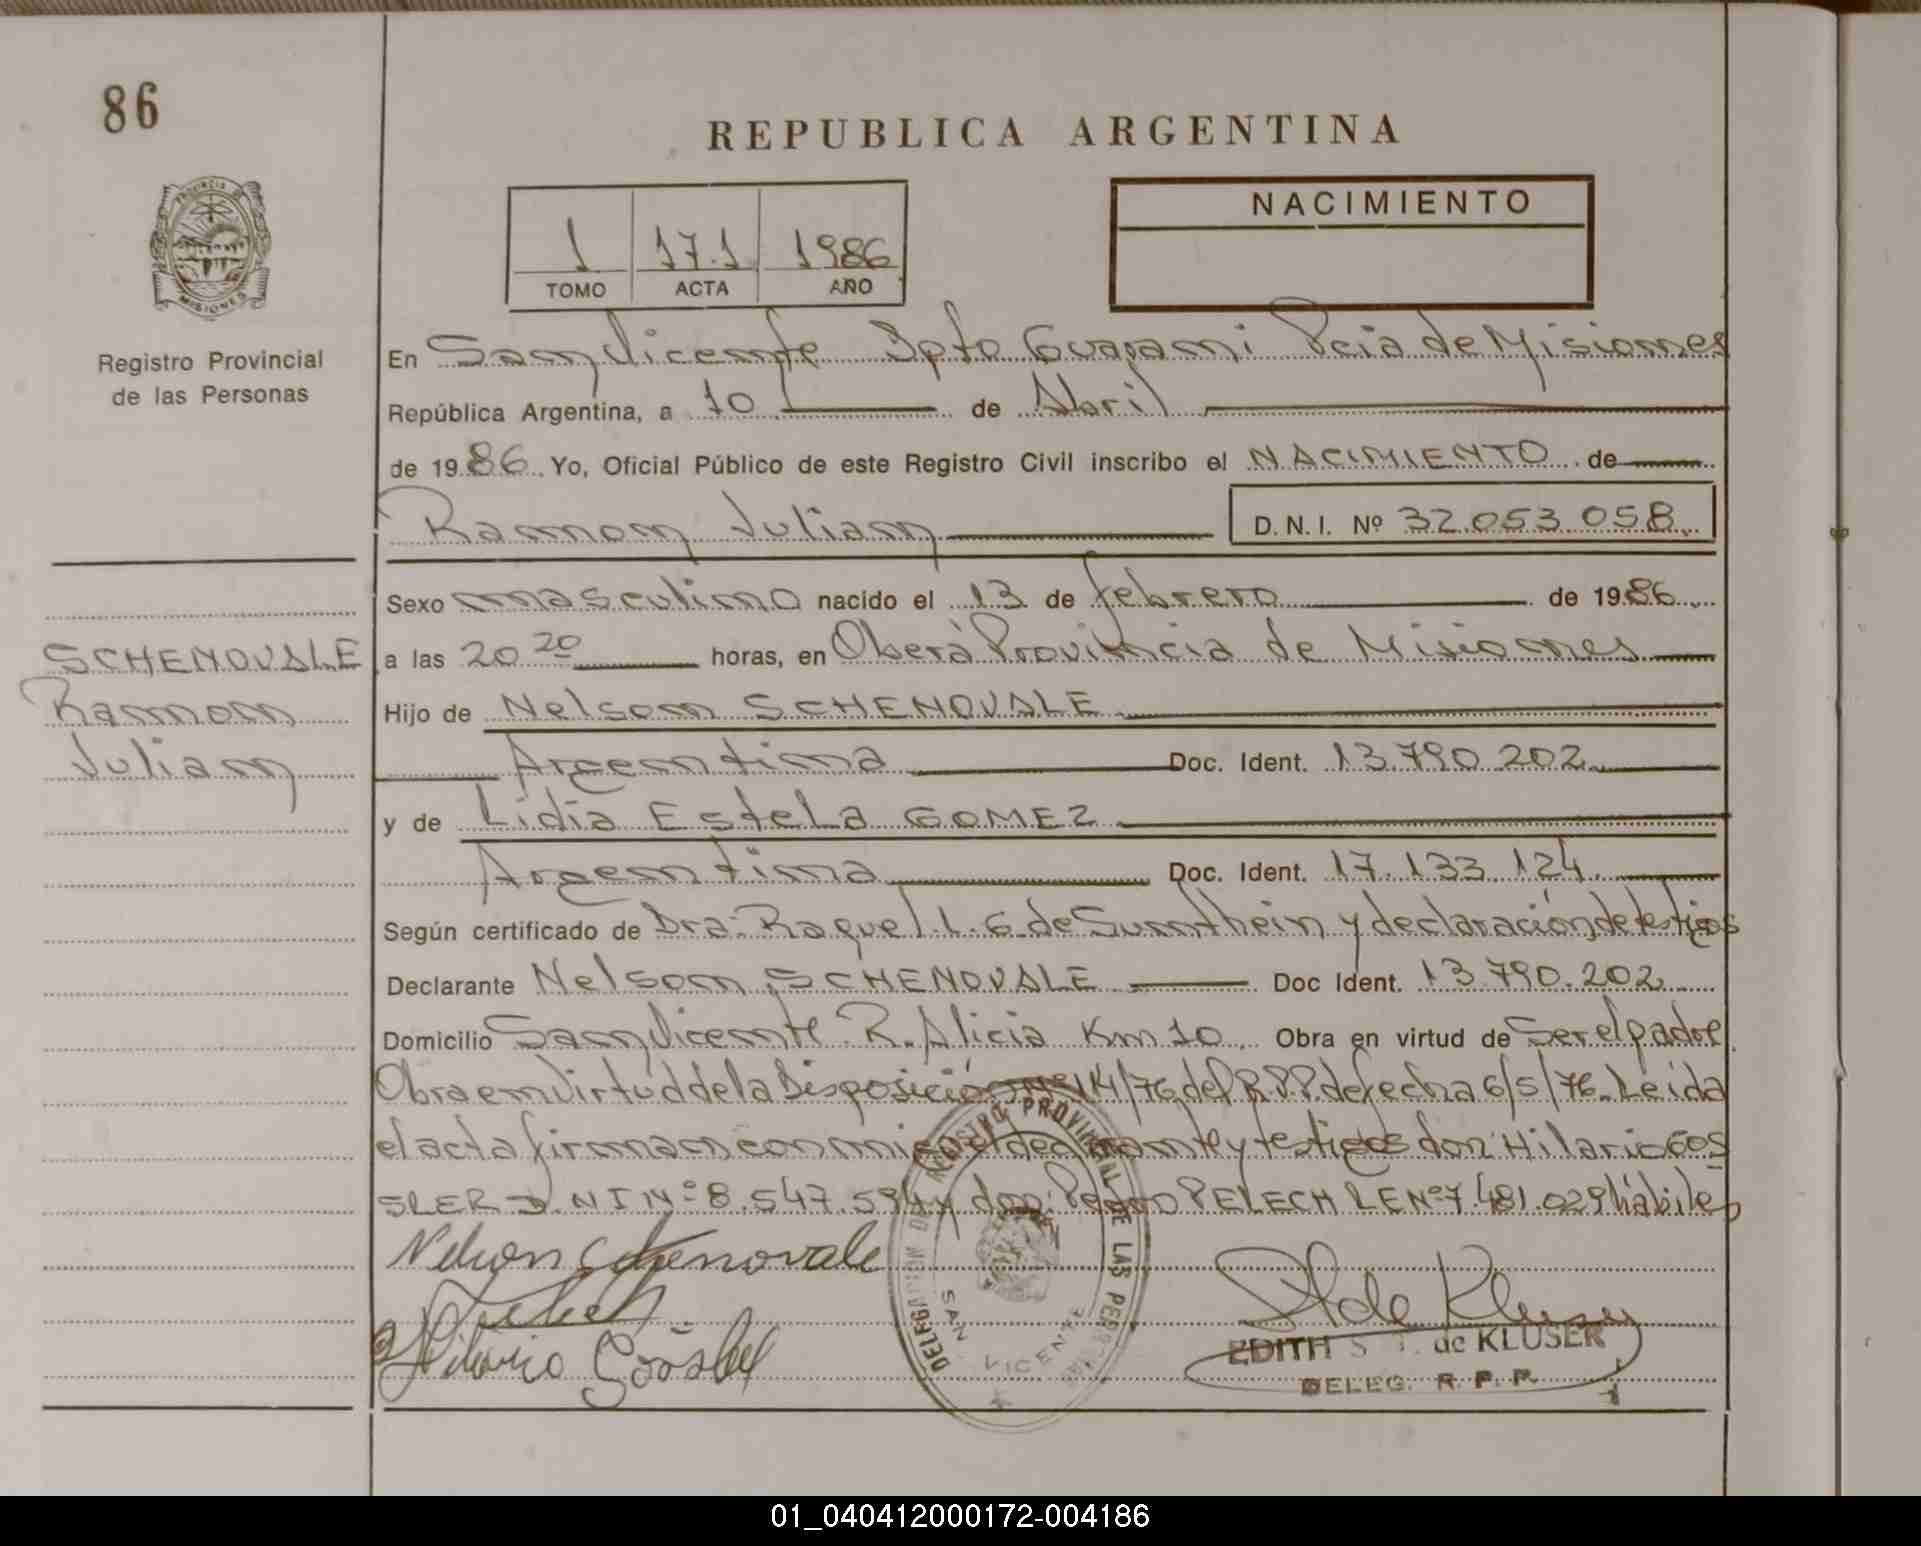 86
REPUBLICA ARGENTINA
PROVINCIA DE
MISIONES
Registro Provincial
de las Personas
1 171 1986
TOMO ACTA AÑO
NACIMIENTO
En San Vicente Dpto Guarani Pcia de Misiones
República Argentina, a 10 de Abril
de 1986 Yo, Oficial Público de este Registro Civil inscribo el NACIMIENTO de
Ramon Julian D.N.I. Nº 32.053.058
Sexo masculino nacido el 13 de febrero de 1986
SCHENOVALE
Ramon
Julian
a las 20 20 horas, en Oberá Provincia de Misiones
Hijo de Nelson SCHENOVALE
Argentina Doc. Ident. 13.790.202
y de Lidia Estela GOMEZ
Argentina Doc. Ident. 17.133.124
Según certificado de Dra: Raquel L. G. de Sunthein y declaración de testigos
Declarante Nelson SCHENOVALE Doc Ident. 13.790.202
Domicilio San Vicente R. Alicia Km 10 Obra en virtud de Ser el padre
Obra en Virtud de la Disposición Nº 14/76 del R.P.P. de fecha 6/5/76. Leida
el acta firman conmigo el declarante y testigos don: Hilario GOS
SLER D.N I Nº 8.547.594 y don: Pedro PELECH L E Nº 7.481.029 hábiles
Nelson Schenovale
Hilario Gössler
DELEGACION REGISTRO PROVINCIAL DE LAS PERSONAS
SAN VICENTE
de Kluser
EDITH S de KLUSER
DELEG. R. P. P.
01_040412000172-004186